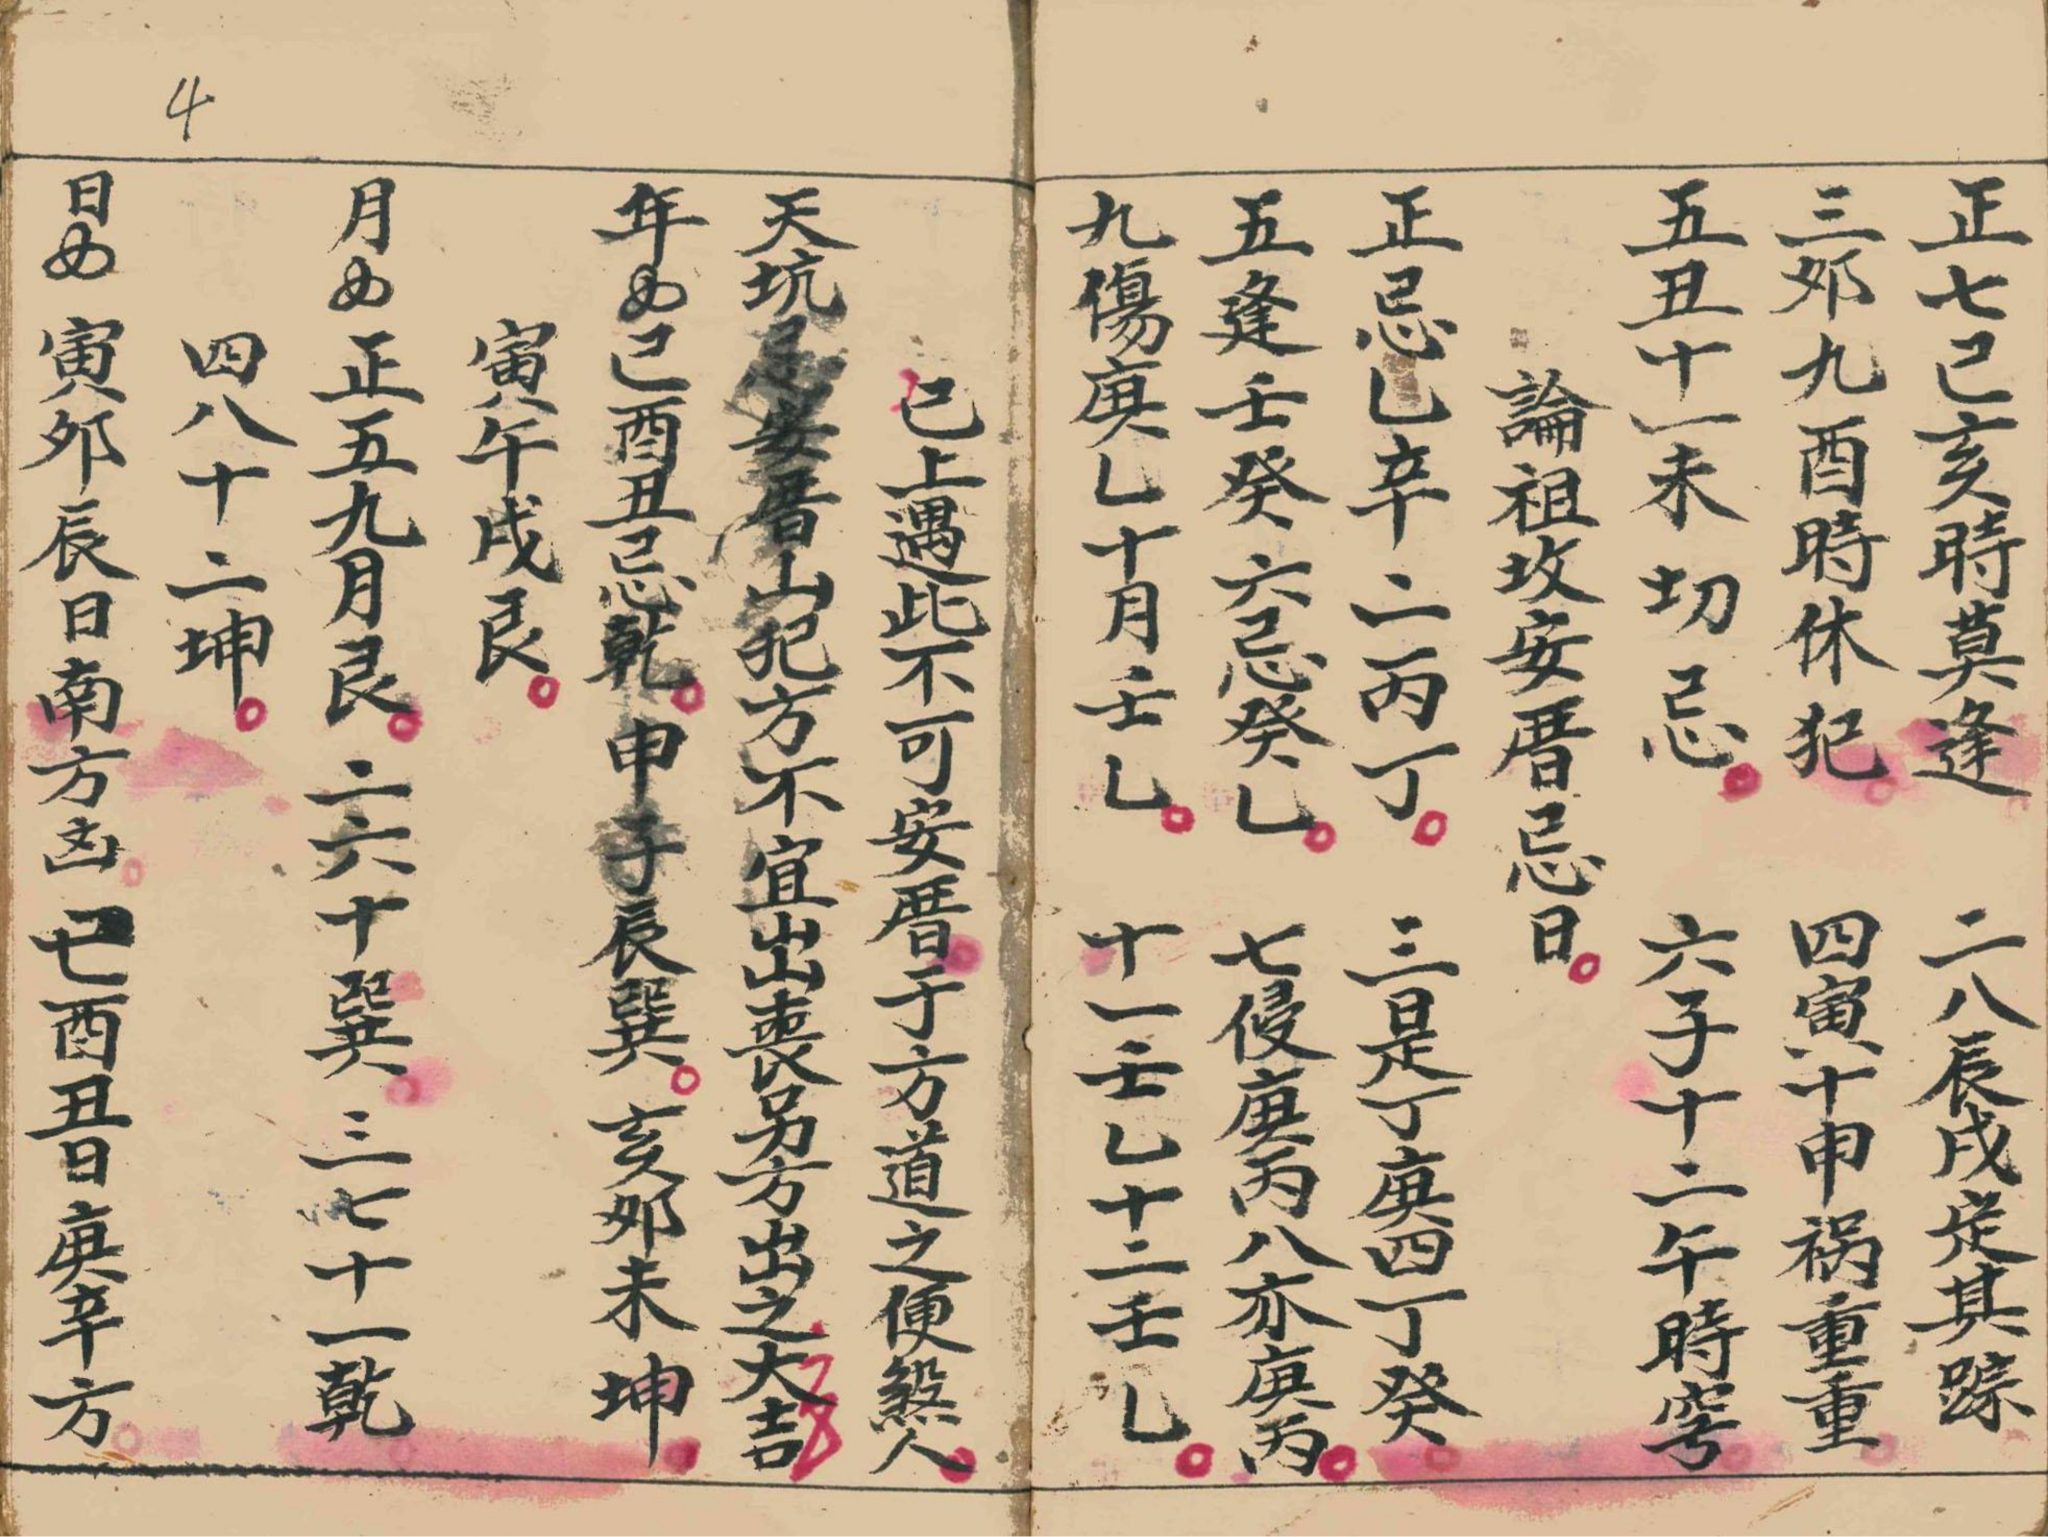 正七巳亥時莫逢 二八辰戌定其踪
三卯九酉時休犯 四寅十申祸重重
五丑十一未切忌 六子十二午時穹
論祖坟安厝忌日
正忌乙辛二丙丁 三是丁庚四丁癸
五逢壬癸六忌癸乚 七侵庚丙八亦庚丙
九傷庚乚十月壬乚 十一壬乚十二壬乚
已上遇此不可安厝于方道之便煞人
天坑忌安厝山犯方不宜出丧另方出之大吉
年 巳酉丑忌乾 申子辰巽 亥卯未坤
寅午戌艮
月 正五九月艮 二六十巽 三七十一乾
四八十二坤
日 寅卯辰日南方凶 酉丑日庚辛方
4